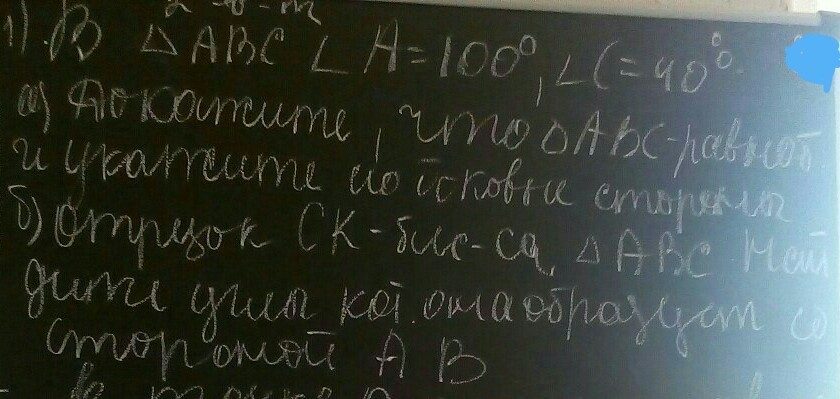 2-й-т
1). В △ABC ∠A=100°, ∠C=40°.
а) Докажите, что △ABC-равноб
и укажите его боковые стороны
б) Отрезок CK-бис-са △ABC Най
дите углы кот. она образует со
стороной AB